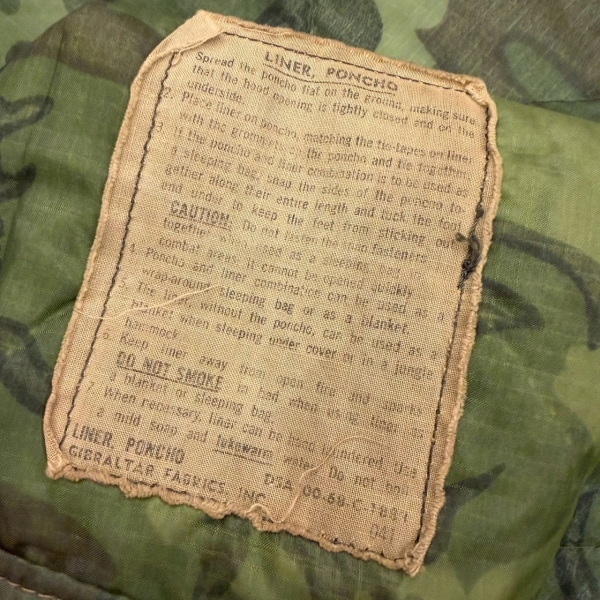 LINER, PONCHO
Spread the poncho flat on the ground, making sure
that the hood opening is tightly closed and on the
underside.
2. Place liner on poncho, matching the tie-tapes on liner
with the grommets on the poncho and tie together.
3. If the poncho and liner combination is to be used as
a sleeping bag, snap the sides of the poncho to-
gether along their entire length and tuck the foot
end under to keep the feet from sticking out.
CAUTION: Do not fasten the snap fasteners
together when used as a sleeping bag in
combat areas, it cannot be opened quickly
4. Poncho and liner combination can be used as a
wrap-around sleeping bag or as a blanket.
The liner, without the poncho, can be used as a
blanket when sleeping under cover or in a jungle
hammock.
6. Keep liner away from open fire and sparks
DO NOT SMOKE in bed when using liner as
a blanket or sleeping bag.
7. When necessary, liner can be hand laundered. Use
a mild soap and lukewarm water. Do not boil
LINER, PONCHO
DSA 00-68-C-1881
GIBRALTAR FABRICS, INC.
041